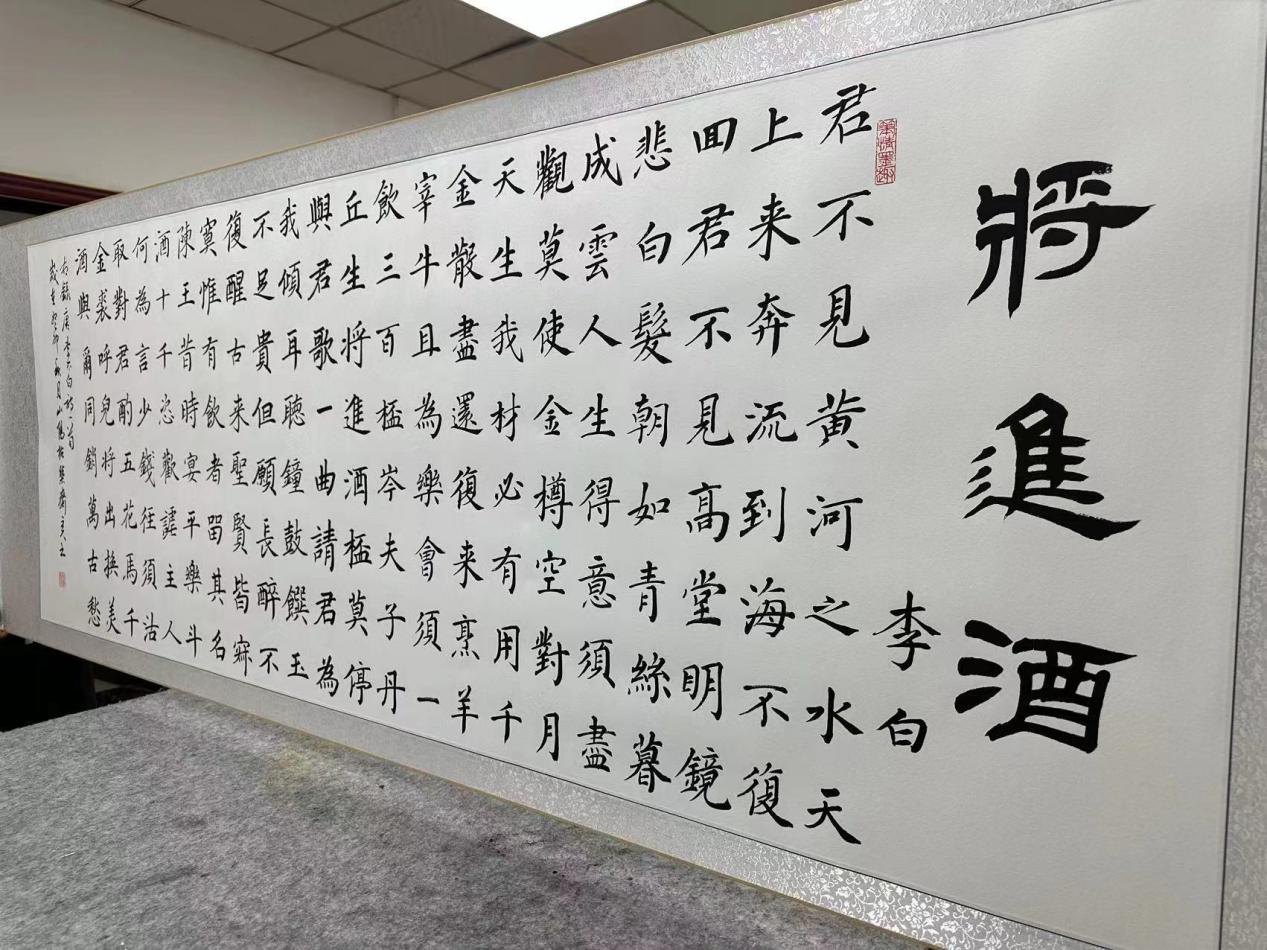 將進酒
李白
君不見黃河之水天
上来奔流到海不復
回君不見高堂明鏡
悲白髮朝如青絲暮
成雲人生得意須盡
觀莫使金樽空對月
天生我材必有用千
金散盡還復来烹羊
宰牛且為樂會須一
飲三百桮岑夫子丹
丘生將進酒桮莫停
與君歌一曲請君為
我傾耳聽鐘鼓饌玉
不足貴但願長醉不
復醒古来聖賢皆寂
寞惟有飲者留其名
陳王昔時宴平樂斗
酒十千恣歡謔主人
何為言少錢徑須沽
取對君酌五花馬千
金裘呼兒將出換美
酒與爾同銷萬古愁
右録唐李太白詩一首
歲在癸卯秋月山陽